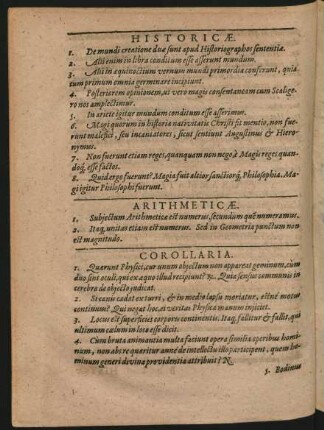 HISTORICÆ.
1. De mundi creatione duæ sunt apud Historiographos sententiæ.
2. Alij enim in libra conditum esse asserunt mundum.
3. Alij in æquinoctium vernum mundi primordia conferunt, quia
tum primum omnia germinare incipiunt.
4. Posteriorem opinionem, ut vero magis consentaneam cum Scalige-
ro nos amplectimur.
5. In ariete igitur mundum conditum esse asserimus.
6. Magi quorum in historia nativitatis Christi fit mentio, non fue-
runt malefici, seu incantatores, sicut sentiunt Augustinus & Hiero-
nymus.
7. Non fuerunt etiam reges, quanquam non nego è Magis reges quan-
doq́; esse factos.
8. Quid ergo fuerunt? Magia fuit altior sanctiorq́; Philosophia. Ma-
gi igitur Philosophi fuerunt.
ARITHMETICÆ.
1. Subjectum Arithmeticæ est numerus, secundum quē numeramus.
2. Itaq; unitas etiam est numerus. Sed in Geometria punctum non
est magnitudo.
COROLLARIA.
1. Quærunt Physici, cur unum objectum non appareat geminum, cùm
duo sint oculi, qui ex æquo illud recipiunt? ℞. Quia sensus communis in
cerebro de objecto judicat.
2. Si canis cadat ex turri, & in medio lapsu moriatur, estne motus
continuus? Qui negat hoc, ei veritas Physica manum injiciet.
3. Locus est superficies corporis continentis. Itaq; fallitur & fallit, qui
ultimum cælum in loco esse dicit.
4. Cum bruta animantia multa faciunt opera similia operibus homi-
num, non abs re quæritur anne de intellectu illa participent, quem ho-
minum generi divina providentia attribuit? N.
5. Bodinus